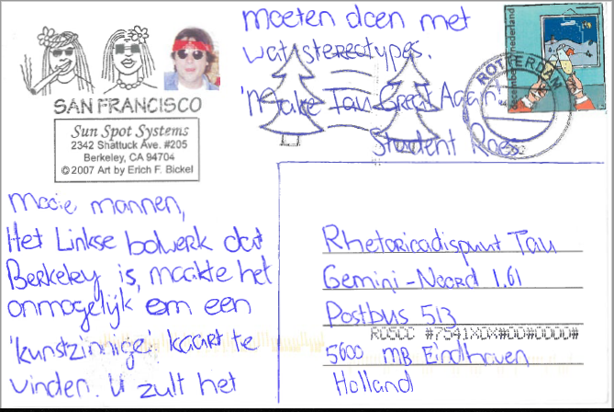 moeten doen met
wat stereotypes.
'Make Tau Great Again'
Student Roes
SAN FRANCISCO
Sun Spot Systems
2342 Shattuck Ave. #205
Berkeley, CA 94704
© 2007 Art by Erich F. Bickel
Nederland
december
ROTTERDAM
Mooie mannen,
Het Linkse bolwerk dat
Berkeley is, maakte het
onmogelijk om een
'kunstzinnige' kaart te
vinden. U zult het
Rhetoricadispuut Tau
Gemini-Noord 1.61
Postbus 513
5600 MB Eindhoven
Holland